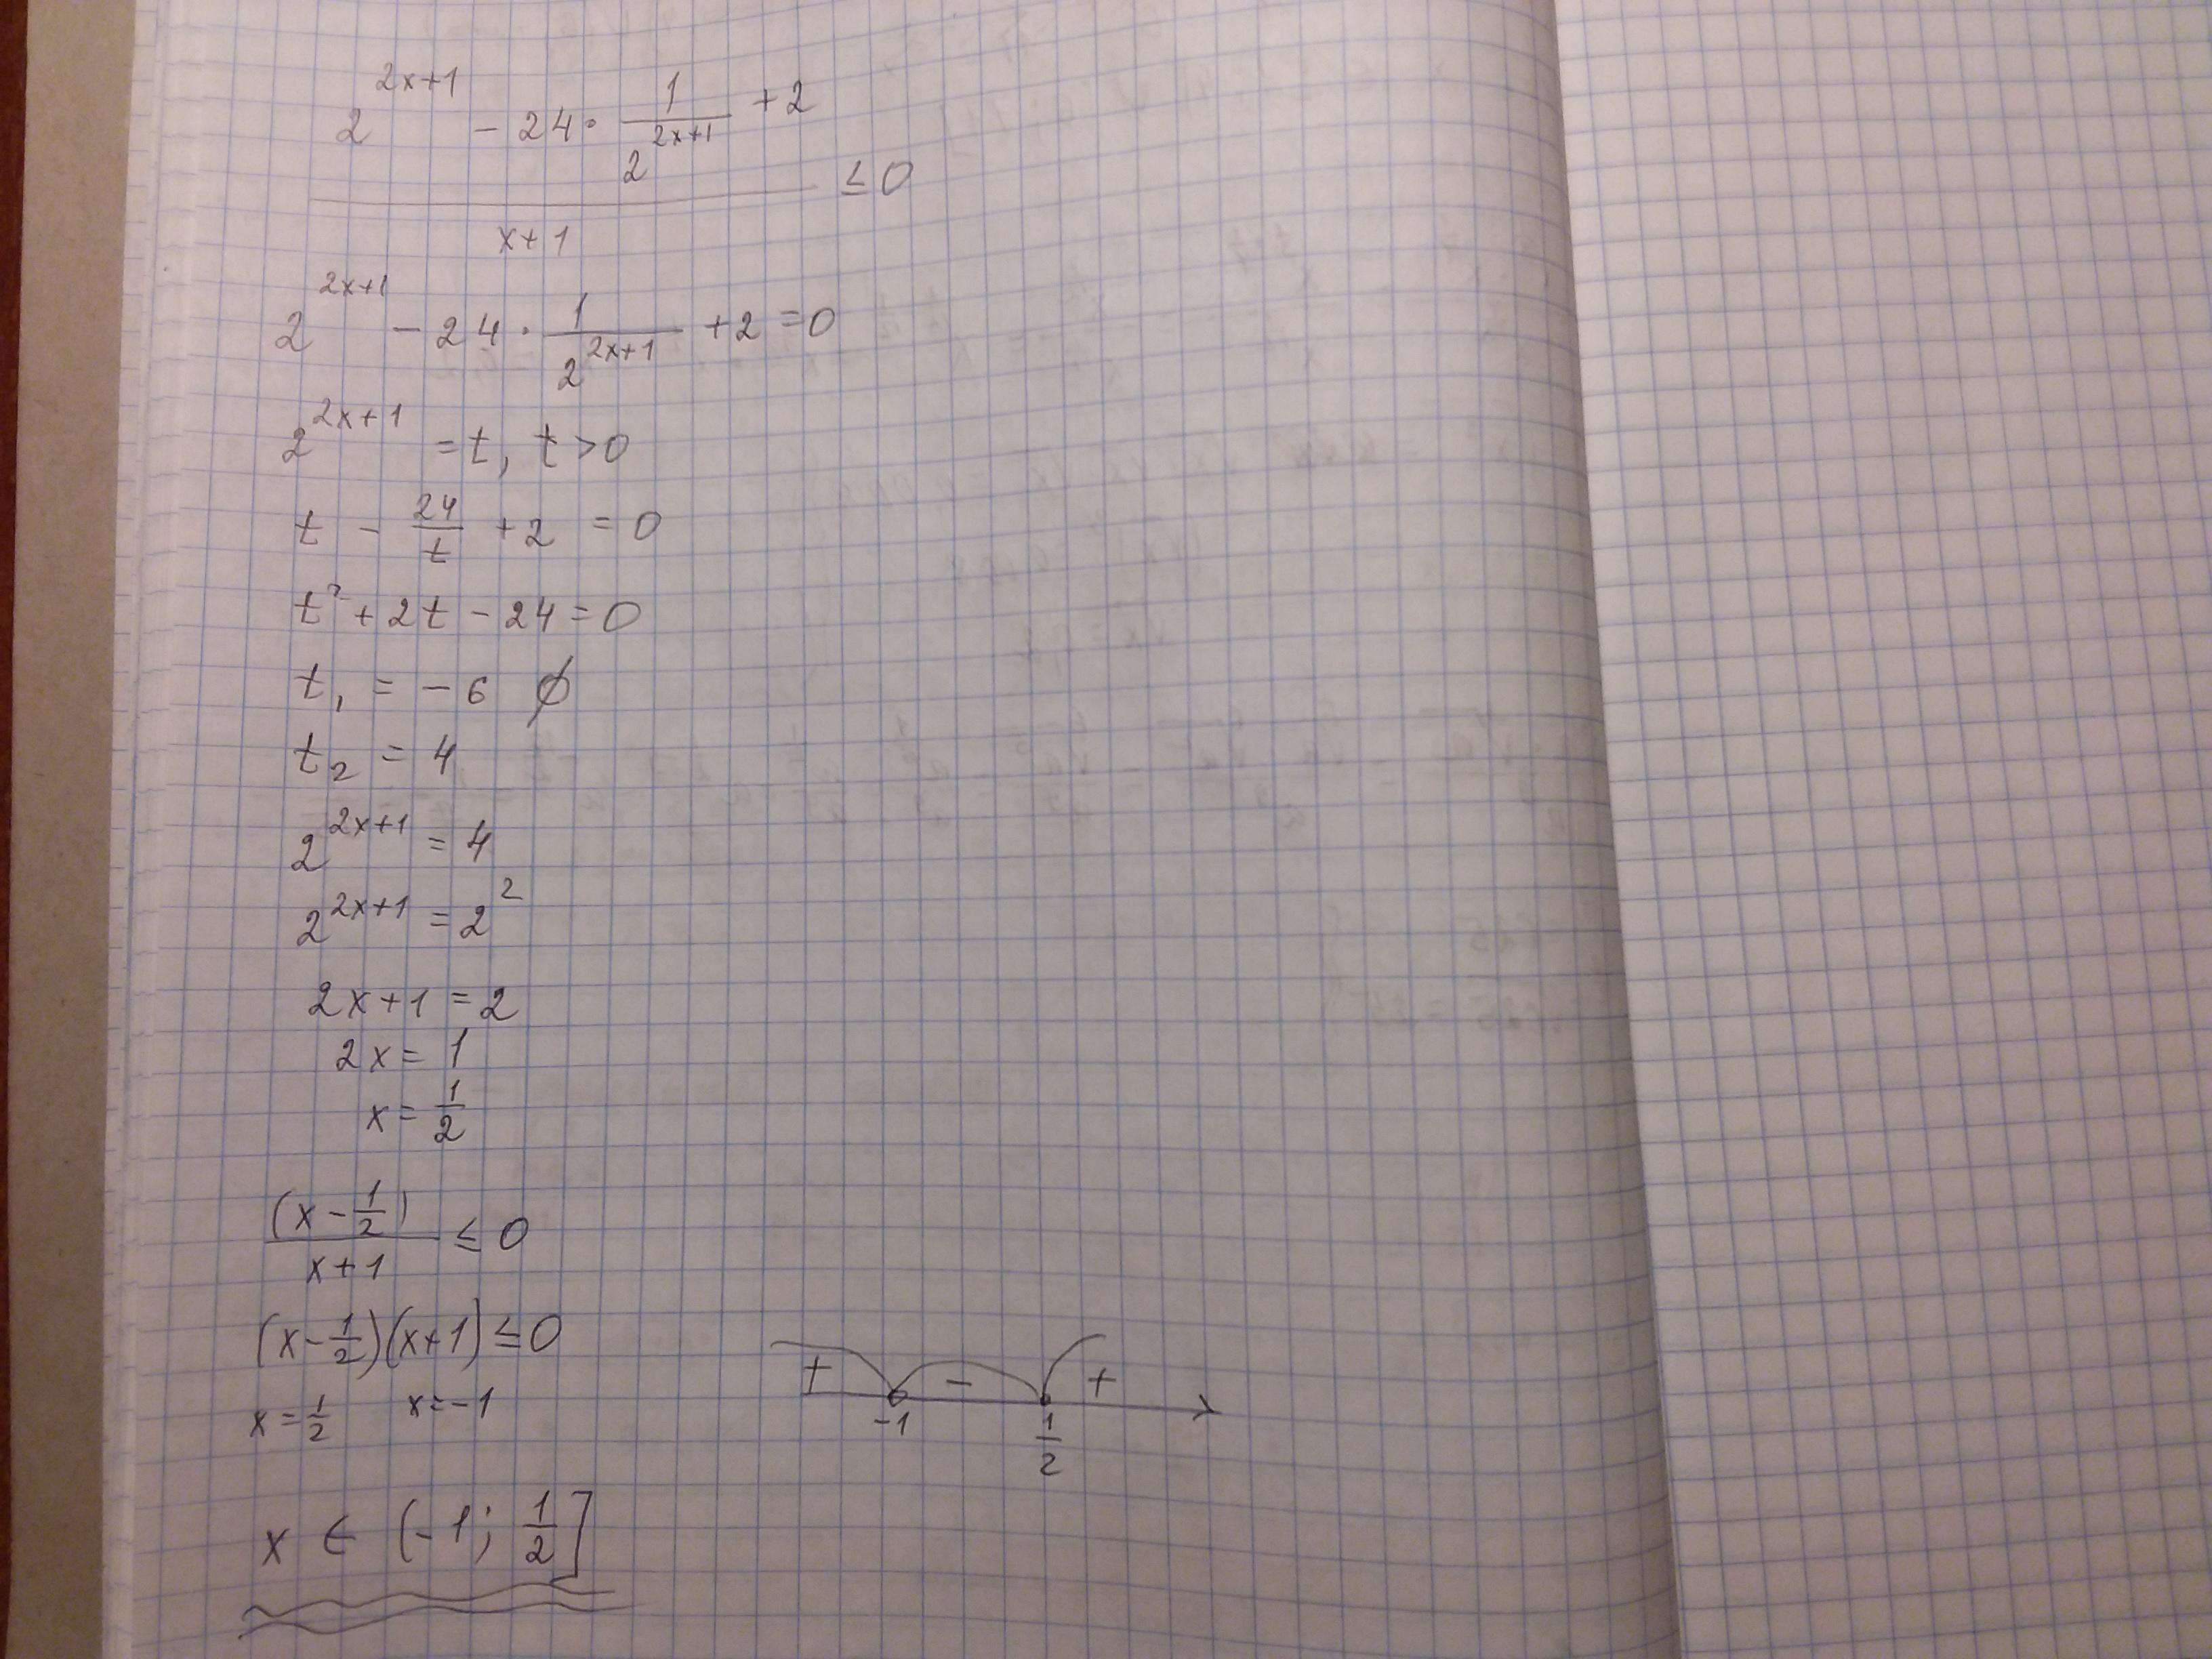 2^(2x+1) - 24 · 1/2^(2x+1) + 2
≤ 0
x+1
2^(2x+1) - 24 · 1/2^(2x+1) + 2 = 0
2^(2x+1) = t, t > 0
t - 24/t + 2 = 0
t² + 2t - 24 = 0
t₁ = -6 ∅
t₂ = 4
2^(2x+1) = 4
2^(2x+1) = 2²
2x+1 = 2
2x = 1
x = 1/2
(x - 1/2)
≤ 0
x+1
(x - 1/2)(x+1) ≤ 0
x = 1/2 x = -1
+ - +
-1 1/2
x ∈ (-1; 1/2]